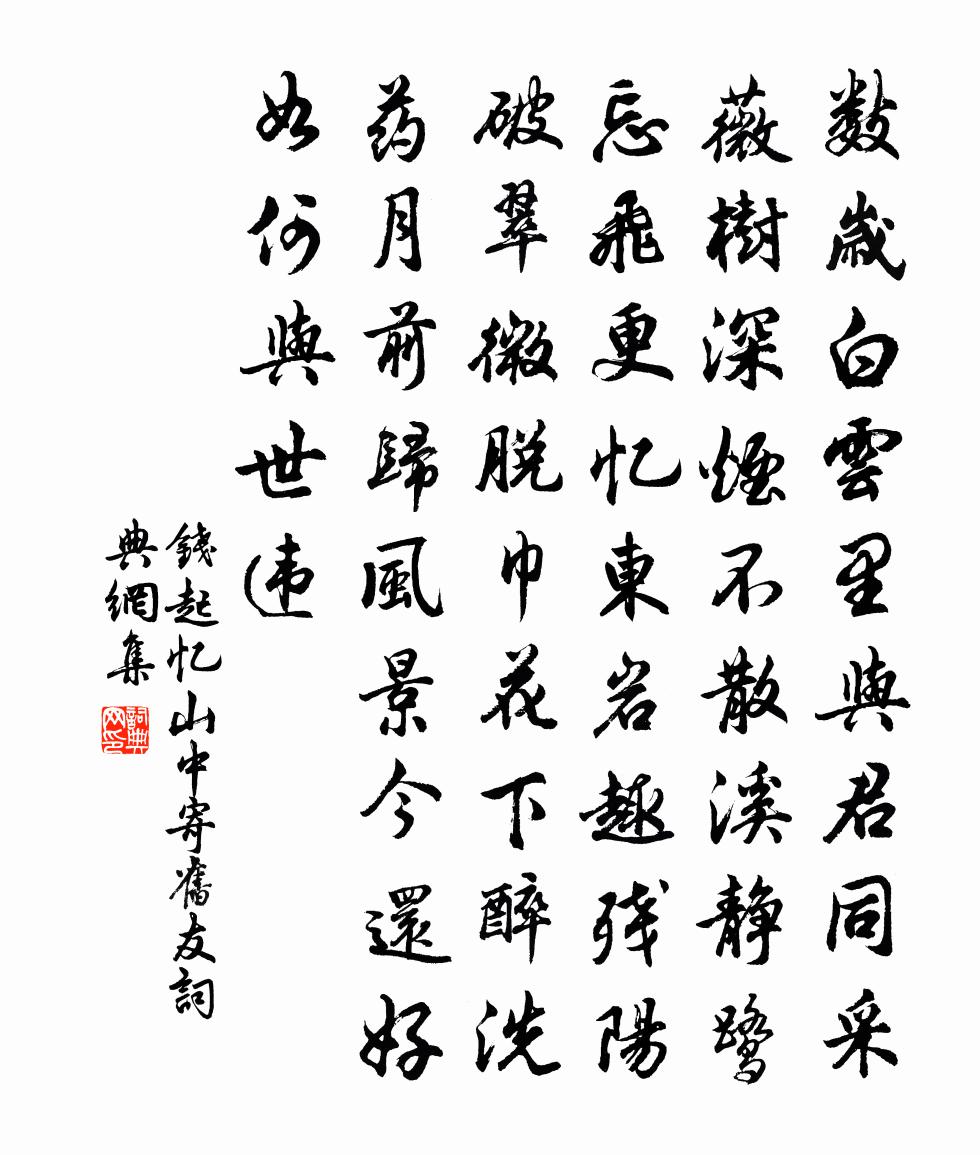 数歲白雲里與君同采
薇樹深煙不散溪靜鹭
忘飛更忆東岩趣残陽
破翠微脱巾花下醉洗
药月前歸風景今還好
如何與世违
錢起忆山中寄舊友詞
典網集
詞典
网印